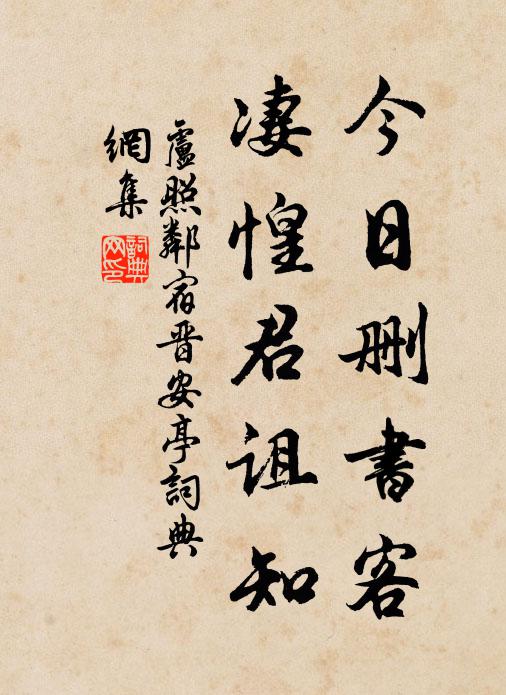 今日删書客
凄惶君詛知
盧照鄰宿晋安亭詞典
網集
詞典
网印